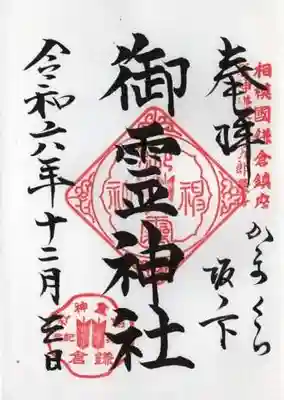 奉拝
相模國鎌倉鎮座
かまくら
坂ノ下
御霊神社
令和六年十二月三日
鎌倉